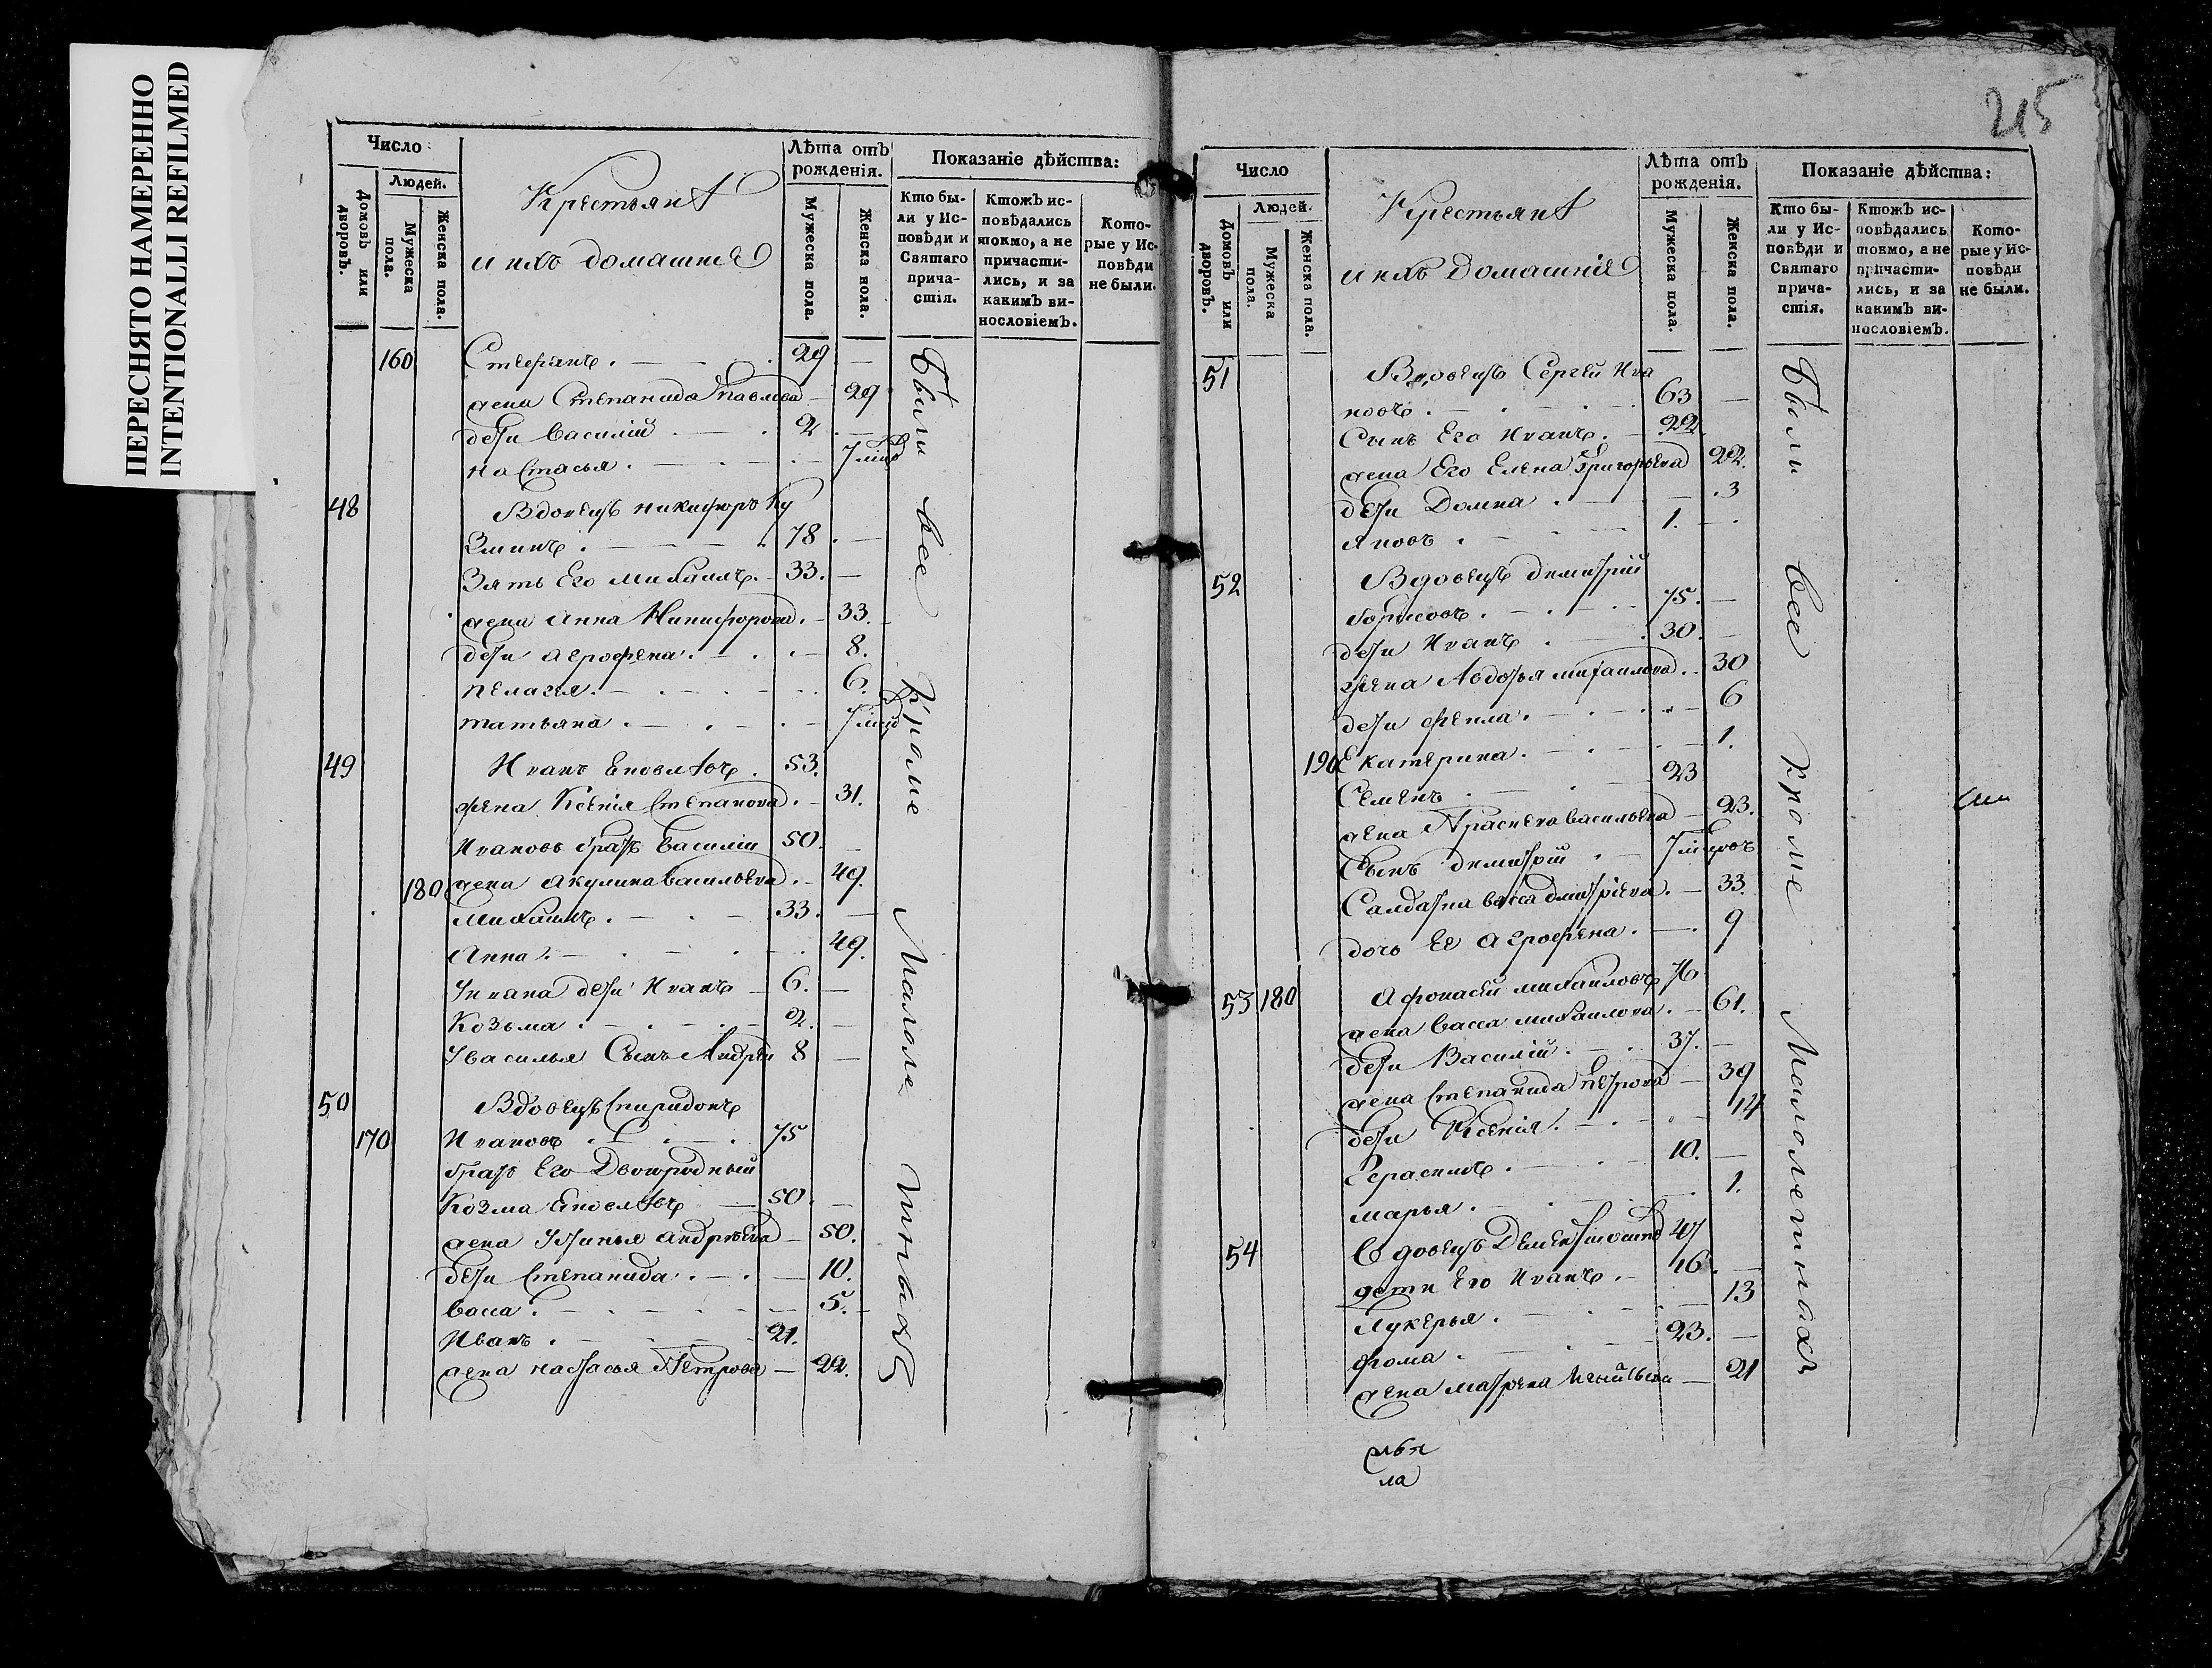 ПЕРЕСНЯТО НАМЕРЕННО
INTENTIONALLI REFILMED
Число
Людей.
Домовъ или дворовъ.
Мужеска пола.
Женска пола.
Крестьянѣ
и ихъ домашніе
Лѣта отъ рожденія.
Мужеска пола.
Женска пола.
Показаніе дѣйства:
Кто были у Исповѣди и Святаго причастія.
Ктожъ исповѣдались токмо, а не причастились, и за какимъ винословіемъ.
Которые у Исповѣди не были.
160 Стефанъ 29
жена Степанида Павлова 29
дети Василій 2
Настасья
48 Вдовецъ Никифоръ Ку
зминъ 78
Зять Его Михаилъ 33
жена Анна Никифорова 33
дети Агрофена 8
Пелагея 6
Татьяна
49 Иванъ 53
жена Ксенія Степанова 31
Ивановъ братъ Василій 50
180 жена Акулина Васильева 49
Михаилъ 33
Анна 49
У Ивана дети Иванъ 6
Козьма 2
У Василья Сынъ Андрей 8
50 Вдовецъ Спиридонъ
170 Ивановъ 75
братъ Его Двоюродный
Козма 50
жена Устинья Андреева 50
дети Степанида 10
Васса 5
Иванъ 21
жена Настасья Петрова 22
Были все Кроме Малолетныхъ
215
Число
Людей.
Домовъ или дворовъ.
Мужеска пола.
Женска пола.
Крестьянѣ
и ихъ домашніе
Лѣта отъ рожденія.
Мужеска пола.
Женска пола.
Показаніе дѣйства:
Кто были у Исповѣди и Святаго причастія.
Ктожъ исповѣдались токмо, а не причастились, и за какимъ винословіемъ.
Которые у Исповѣди не были.
51 Вдовецъ Сергей Ива
новъ 63
Сынъ Его Иванъ 22
жена Его Елена Григорьева 22
дети Домна 3
Яковъ 1
52 Вдовецъ Димитрій
Борисовъ 75
дети Иванъ 30
жена Авдотья Михаилова 30
дети Фекла 6
190 Екатерина 1
Семенъ 23
жена Прасковa Васильева 23
Сынъ Димитрій
Салдатка Васса Дмитріева 33
дочь Ее Агрофена 9
53 180 Афонасей Михаиловъ 76
жена Васса Михаилова 61
дети Василій 37
жена Степанида Петрова 39
дети Ксенія 14
Герасимъ 10
Марья 1
54 Вдовецъ 47
дети Его Иванъ 16
Лукерья 13
Фома 23
жена Матрена 21
Были все Кроме Малолетныхъ